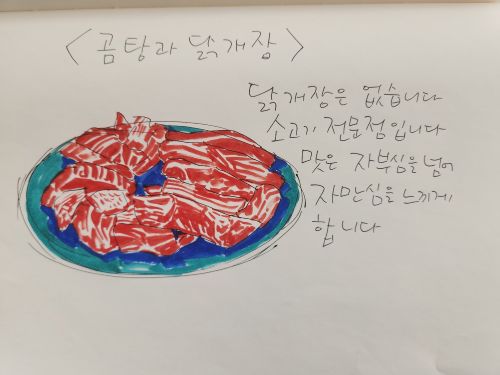 <곰탕과 닭개장>
닭개장은 없습니다
소고기 전문점입니다
맛은 자부심을 넘어
자만심을 느끼게
합니다